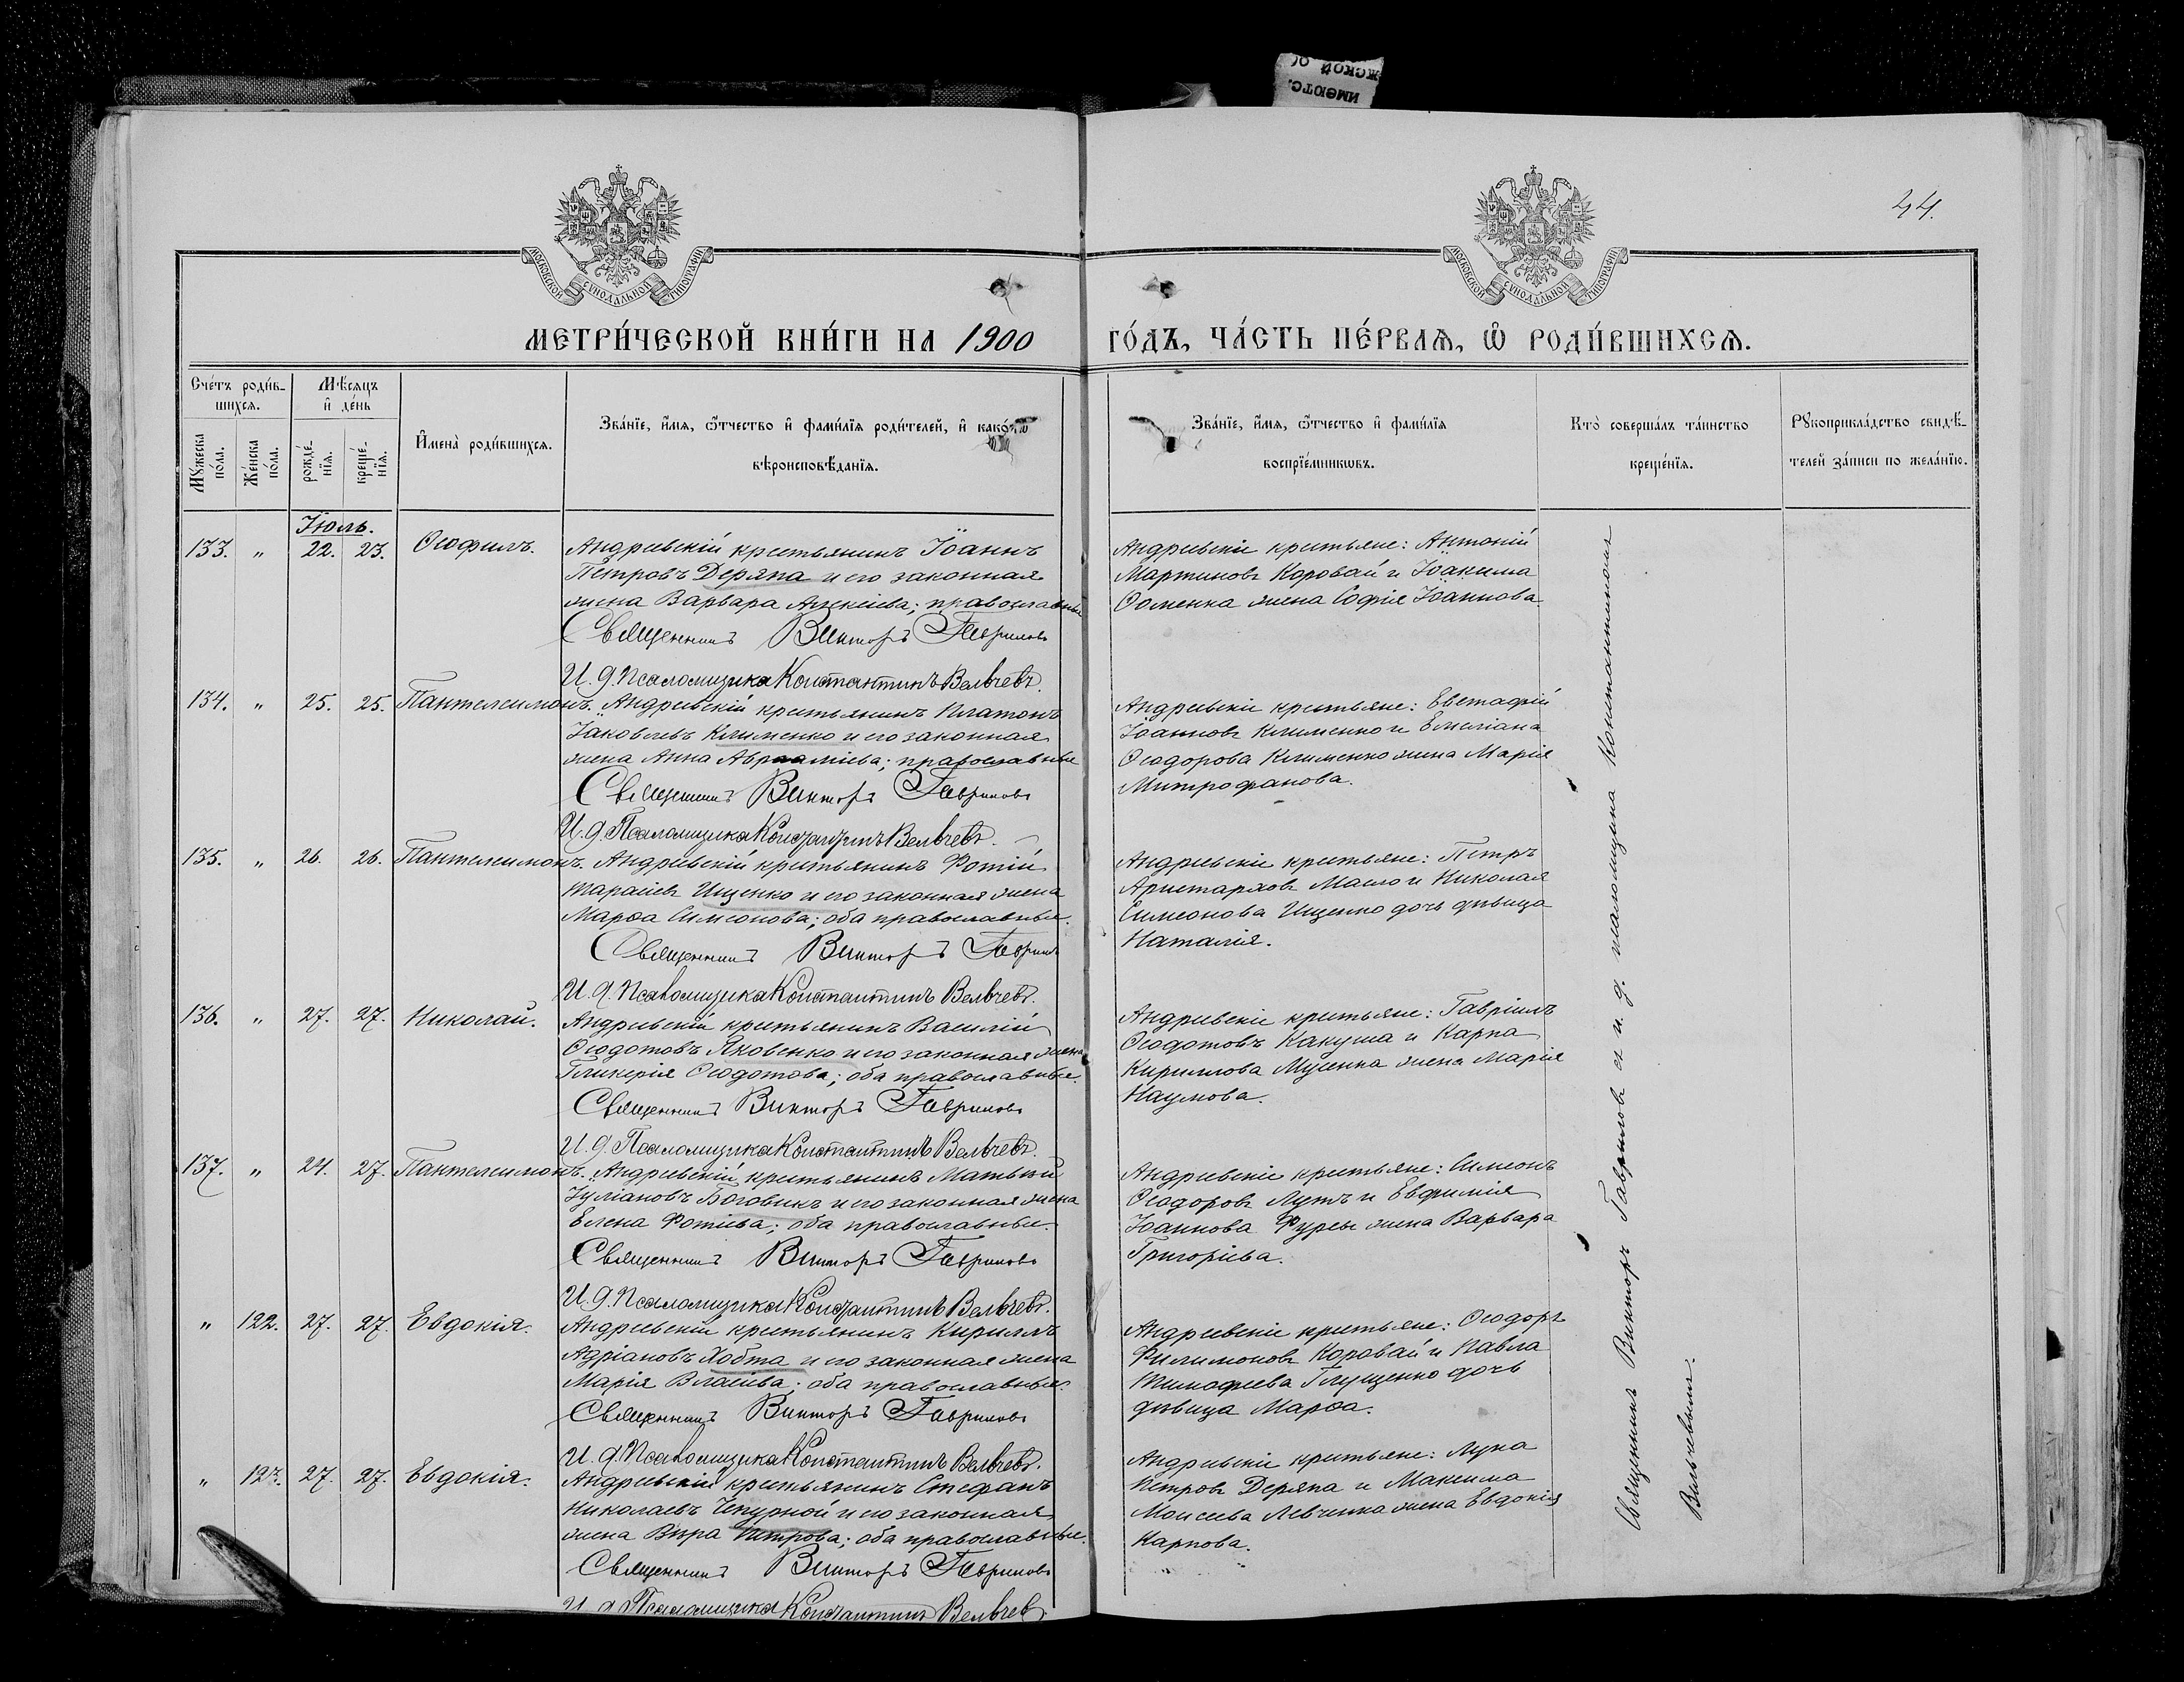 44.
МОСКОВСКОЙ СѴНОДАЛЬНОЙ ТИПОГРАФІИ
МОСКОВСКОЙ СѴНОДАЛЬНОЙ ТИПОГРАФІИ
МЕТРИ́ЧЕСКОЙ КНИ́ГИ НА 1900 ГО́ДЪ, ЧА́СТЬ ПЕ́РВАѦ, Ѽ РОДИ́ВШИХСѦ.
Сче́тъ роди́в-
шихсѧ.
Мѣ́сяцъ
и҆ де́нь
Мꙋ́жеска по́ла.
Же́нска по́ла.
рожде́-
нїѧ.
креще́-
нїѧ.
И҆мена̀ роди́вшихсѧ.
Зва́нїе, и҆́мѧ, ѻ҆́тчество и҆ фами́лїѧ роди́телей, и҆ како́гѡ
вѣроисповѣ́данїѧ.
Зва́нїе, и҆́мѧ, ѻ҆́тчество и҆ фами́лїѧ
воспрїе́мникѡвъ.
Кто̀ соверша́лъ та́инство
креще́нїѧ.
Рꙋкоприкла́дство свидѣ́-
телей за́писи по жела́нїю.
Іюль.
133. „ 22. 23. Ѳеофилъ. Андреевскій крестьянинъ Іоаннъ
Петровъ Деряпа и его законная
жена Варвара Алексіева; православные
Священникъ Викторъ Гавриловъ
И. д. Псаломщика Константинъ Вельчевъ.
Андреевскіе крестьяне: Антоній
Мартиновъ Коровай и Іоакима
Ѳоменка жена Софія Іоаннова
134. „ 25. 25. Пантелеимонъ. Андреевскій крестьянинъ Платонъ
Іаковлевъ Клименко и его законная
жена Анна Авраамiева; православные
Священникъ Викторъ Гавриловъ
И. д. Псаломщика Константинъ Вельчевъ.
Андреевскіе крестьяне: Евстафій
Іоанновъ Клименко и Емеліана
Ѳеодорова Клименко жена Марія
Митрофанова.
135. „ 26. 26. Пантелеимонъ. Андреевскій крестьянинъ Фотій
Тарасіевъ Ищенко и его законная жена
Марѳа Симеонова; оба православные.
Священникъ Викторъ Гавриловъ
И. д. Псаломщика Константинъ Вельчевъ.
Андреевскіе крестьяне: Петръ
Аристарховъ Масло и Николая
Симеонова Ищенко дочь дѣвица
Наталія.
136. „ 27. 27. Николай. Андреевскій крестьянинъ Василій
Ѳеодотовъ Яковенко и его законная жена
Гликерія Ѳеодотова; оба православные.
Священникъ Викторъ Гавриловъ
И. д. Псаломщика Константинъ Вельчевъ.
Андреевскіе крестьяне: Гавріилъ
Ѳеодотовъ Какуша и Карпа
Кириллова Мусенка жена Марія
Наумова.
137. „ 24. 27. Пантелеимонъ. Андреевскій крестьянинъ Матвѣй
Іуліановъ Боговикъ и его законная жена
Елена Фотіева; оба православные.
Священникъ Викторъ Гавриловъ
И. д. Псаломщика Константинъ Вельчевъ.
Андреевскіе крестьяне: Симеонъ
Ѳеодоровъ Лутъ и Евфимія
Іоаннова Фурсы жена Варвара
Григоріева.
„ 122. 27. 27. Евдокія. Андреевскій крестьянинъ Кириллъ
Адріановъ Хобта и его законная жена
Марія Власіева; оба православные.
Священникъ Викторъ Гавриловъ
И. д. Псаломщика Константинъ Вельчевъ.
Андреевскіе крестьяне: Ѳеодоръ
Филимоновъ Коровай и Павла
Тимофеева Глущенко дочь
дѣвица Марѳа.
„ 123. 27. 27. Евдокія. Андреевскій крестьянинъ Стефанъ
Николаевъ Чепурной и его законная
жена Вѣра Петрова; оба православные.
Священникъ Викторъ Гавриловъ
И. д. Псаломщика Константинъ Вельчевъ.
Андреевскіе крестьяне: Лука
Петровъ Деряпа и Максима
Моисеева Левченка жена Евдокія
Карпова.
Священникъ Викторъ Гавриловъ съ и. д. псаломщика Константиномъ
Вельчевымъ.